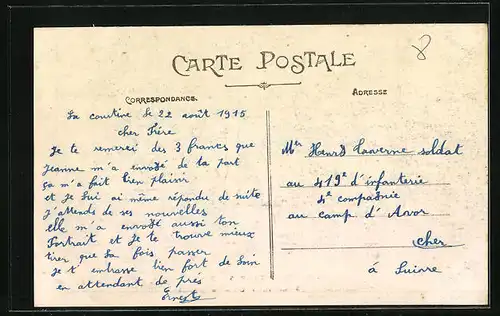 8
CARTE POSTALE
CORRESPONDANCE.
ADRESSE
La courtine le 22 août 1915
cher Frére
Je te remerci des 3 francs que
jeanne m'a envoyé de ta part
ça m'a fait bien plaisir
et je lui ai même répondu de suite
j'attends de ses nouvelles
elle m'a envoyé aussi ton
Portrait et je te trouve mieux
tirer que la fois passer
je t'embrasse bien fort de loin
en attendant de près
Ernest
Mr Henri Laverne soldat
au 419e d'infanterie
4e compagnie
au camp d'Avor
cher
à Suivre